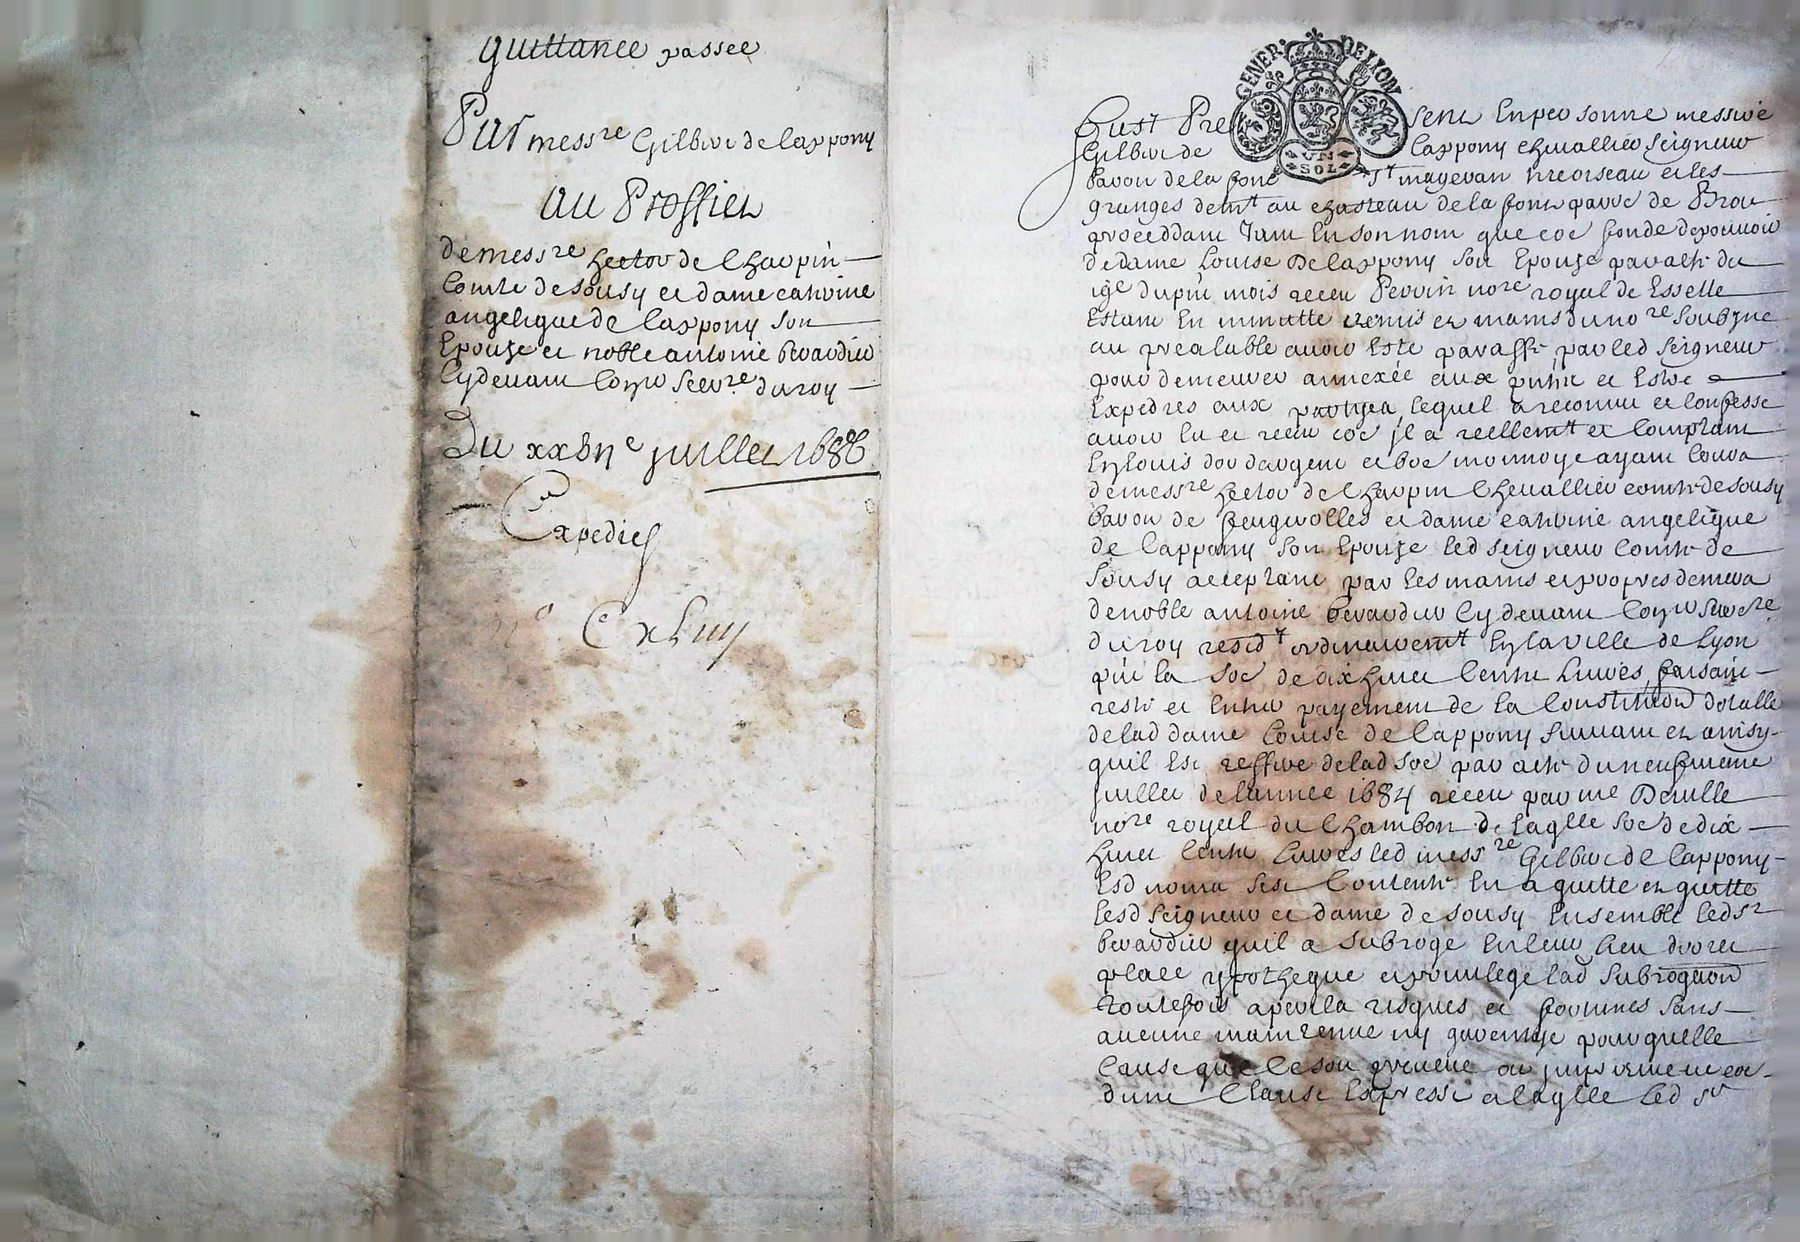 Quittance passee
Par mess.re Gilber de Cappony
Au Proffict
de mess.re hector de Charpin
Comte de Sousy et dame catrine
angelique de Cappony son
Epouse et noble antoine beraudier
Cydevant Con.r Secre.re du roy
Du xxvii.e juillet 1686
Expedies
n.o
GENER DE LYON
UN
SOL
fust Presant En personne messire
Gilber de Cappony chevallier seigneur
baron de la St mageran et les
granges dem.t au chasteau de la
proceddant Tant En son nom que co.e fonde de pouvoir
de dame Louise De Cappony son Epouse par acte du
du p.nt mois receu Perrin no.re royal de
Estant En minutte remis es mains du no.re soubsigne
au prealable avoir Este par led seigneur
pour demeurer annexée aux p.nte et Estre
Expedies aux lequel a reconnu et Confesse
avoir Eu et receu co.e jl a reellem.t et Comptant
En Louis dor dargent et bo.e monnoye ayant Cours
de mess.re hector de Charpin Chevallier comte de sousy
baron de feugerolles et dame catrine angelique
de Cappony son Epouse led seigneur Comte de
Sousy acceptant par les mains et propres deniers
de noble antoine beraudier Cydevant Con.r secre.re
du roy resid.t ordinairem.t En la ville de Lyon
la so.e de dix huict Cents Livres faisant
reste et Entier payement de la Constitution dotalle
de lad dame Louise de Cappony suivant et ainsy
quil Est de lad so.e par acte du neufvieme
juillet de lannee 1684 receu par me
no.re royal du Chambon de laqlle so.e de dix
huict Cents Livres led mess.re Gilber de Cappony
Esd noms sest Contente En a quitte et quitte
lesd seigneur et dame de sousy Ensemble led s.r
beraudier quil a subroge En leur lieu droict
place ypotheque et privilege lad subrogation
touteffois a perilla risques et fortunes sans
aucune maintenue ny garentye pour quelle
Cause que Ce soit
dune Clause Expresse a laqlle led s.r